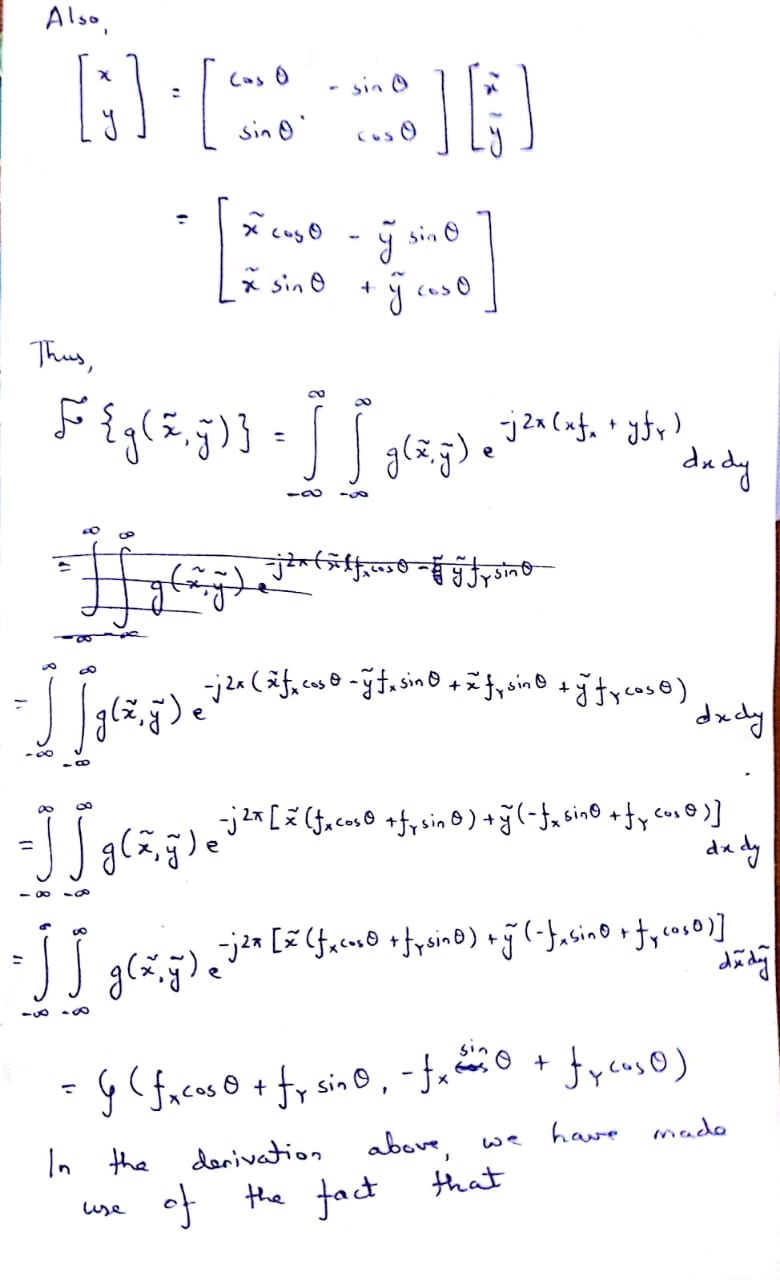 Also,
[x y] = [cos θ - sin θ sin θ cos θ] [x̃ ỹ]
= [x̃ cos θ - ỹ sin θ x̃ sin θ + ỹ cos θ]
Thus,
F {g(x̃,ỹ)} = ∫_{-∞}^{∞} ∫_{-∞}^{∞} g(x̃,ỹ) e^{-j2π(xf_x + yf_Y)} dx dy
= ∫_{-∞}^{∞} ∫_{-∞}^{∞} g(x̃,ỹ) e^{-j2π(x̃f_x cos θ - ỹf_Y sin θ}
= ∫_{-∞}^{∞} ∫_{-∞}^{∞} g(x̃,ỹ) e^{-j2π(x̃f_x cos θ - ỹf_x sin θ + x̃f_Y sin θ + ỹf_Y cos θ)} dx dy
= ∫_{-∞}^{∞} ∫_{-∞}^{∞} g(x̃,ỹ) e^{-j2π[x̃(f_x cos θ + f_Y sin θ) + ỹ(-f_x sin θ + f_Y cos θ)]} dx dy
= ∫_{-∞}^{∞} ∫_{-∞}^{∞} g(x̃,ỹ) e^{-j2π[x̃(f_x cos θ + f_Y sin θ) + ỹ(-f_x sin θ + f_Y cos θ)]} dx̃ dỹ
= G (f_x cos θ + f_Y sin θ, -f_x sin θ + f_Y cos θ)
In the derivation above, we have made
use of the fact that